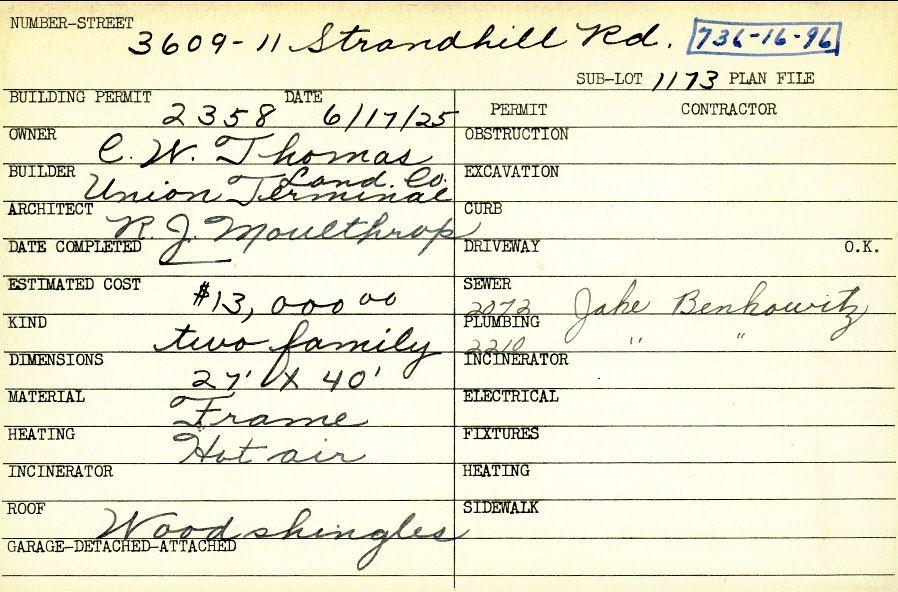 NUMBER-STREET
3609-11 Strandhill Rd. 736-16-96
SUB-LOT 1173 PLAN FILE
BUILDING PERMIT 2358 DATE 6/17/25
OWNER C. W. Thomas
BUILDER Union Terminal Land. Co.
ARCHITECT R. J. Moulthrop
DATE COMPLETED
ESTIMATED COST $13,000 00
KIND two family
DIMENSIONS 27' X 40'
MATERIAL Frame
HEATING Hot air
INCINERATOR
ROOF Wood shingles
GARAGE-DETACHED-ATTACHED
PERMIT CONTRACTOR
OBSTRUCTION
EXCAVATION
CURB
DRIVEWAY O.K.
SEWER
2072 Jake Benkowitz
PLUMBING
2210 " "
INCINERATOR
ELECTRICAL
FIXTURES
HEATING
SIDEWALK